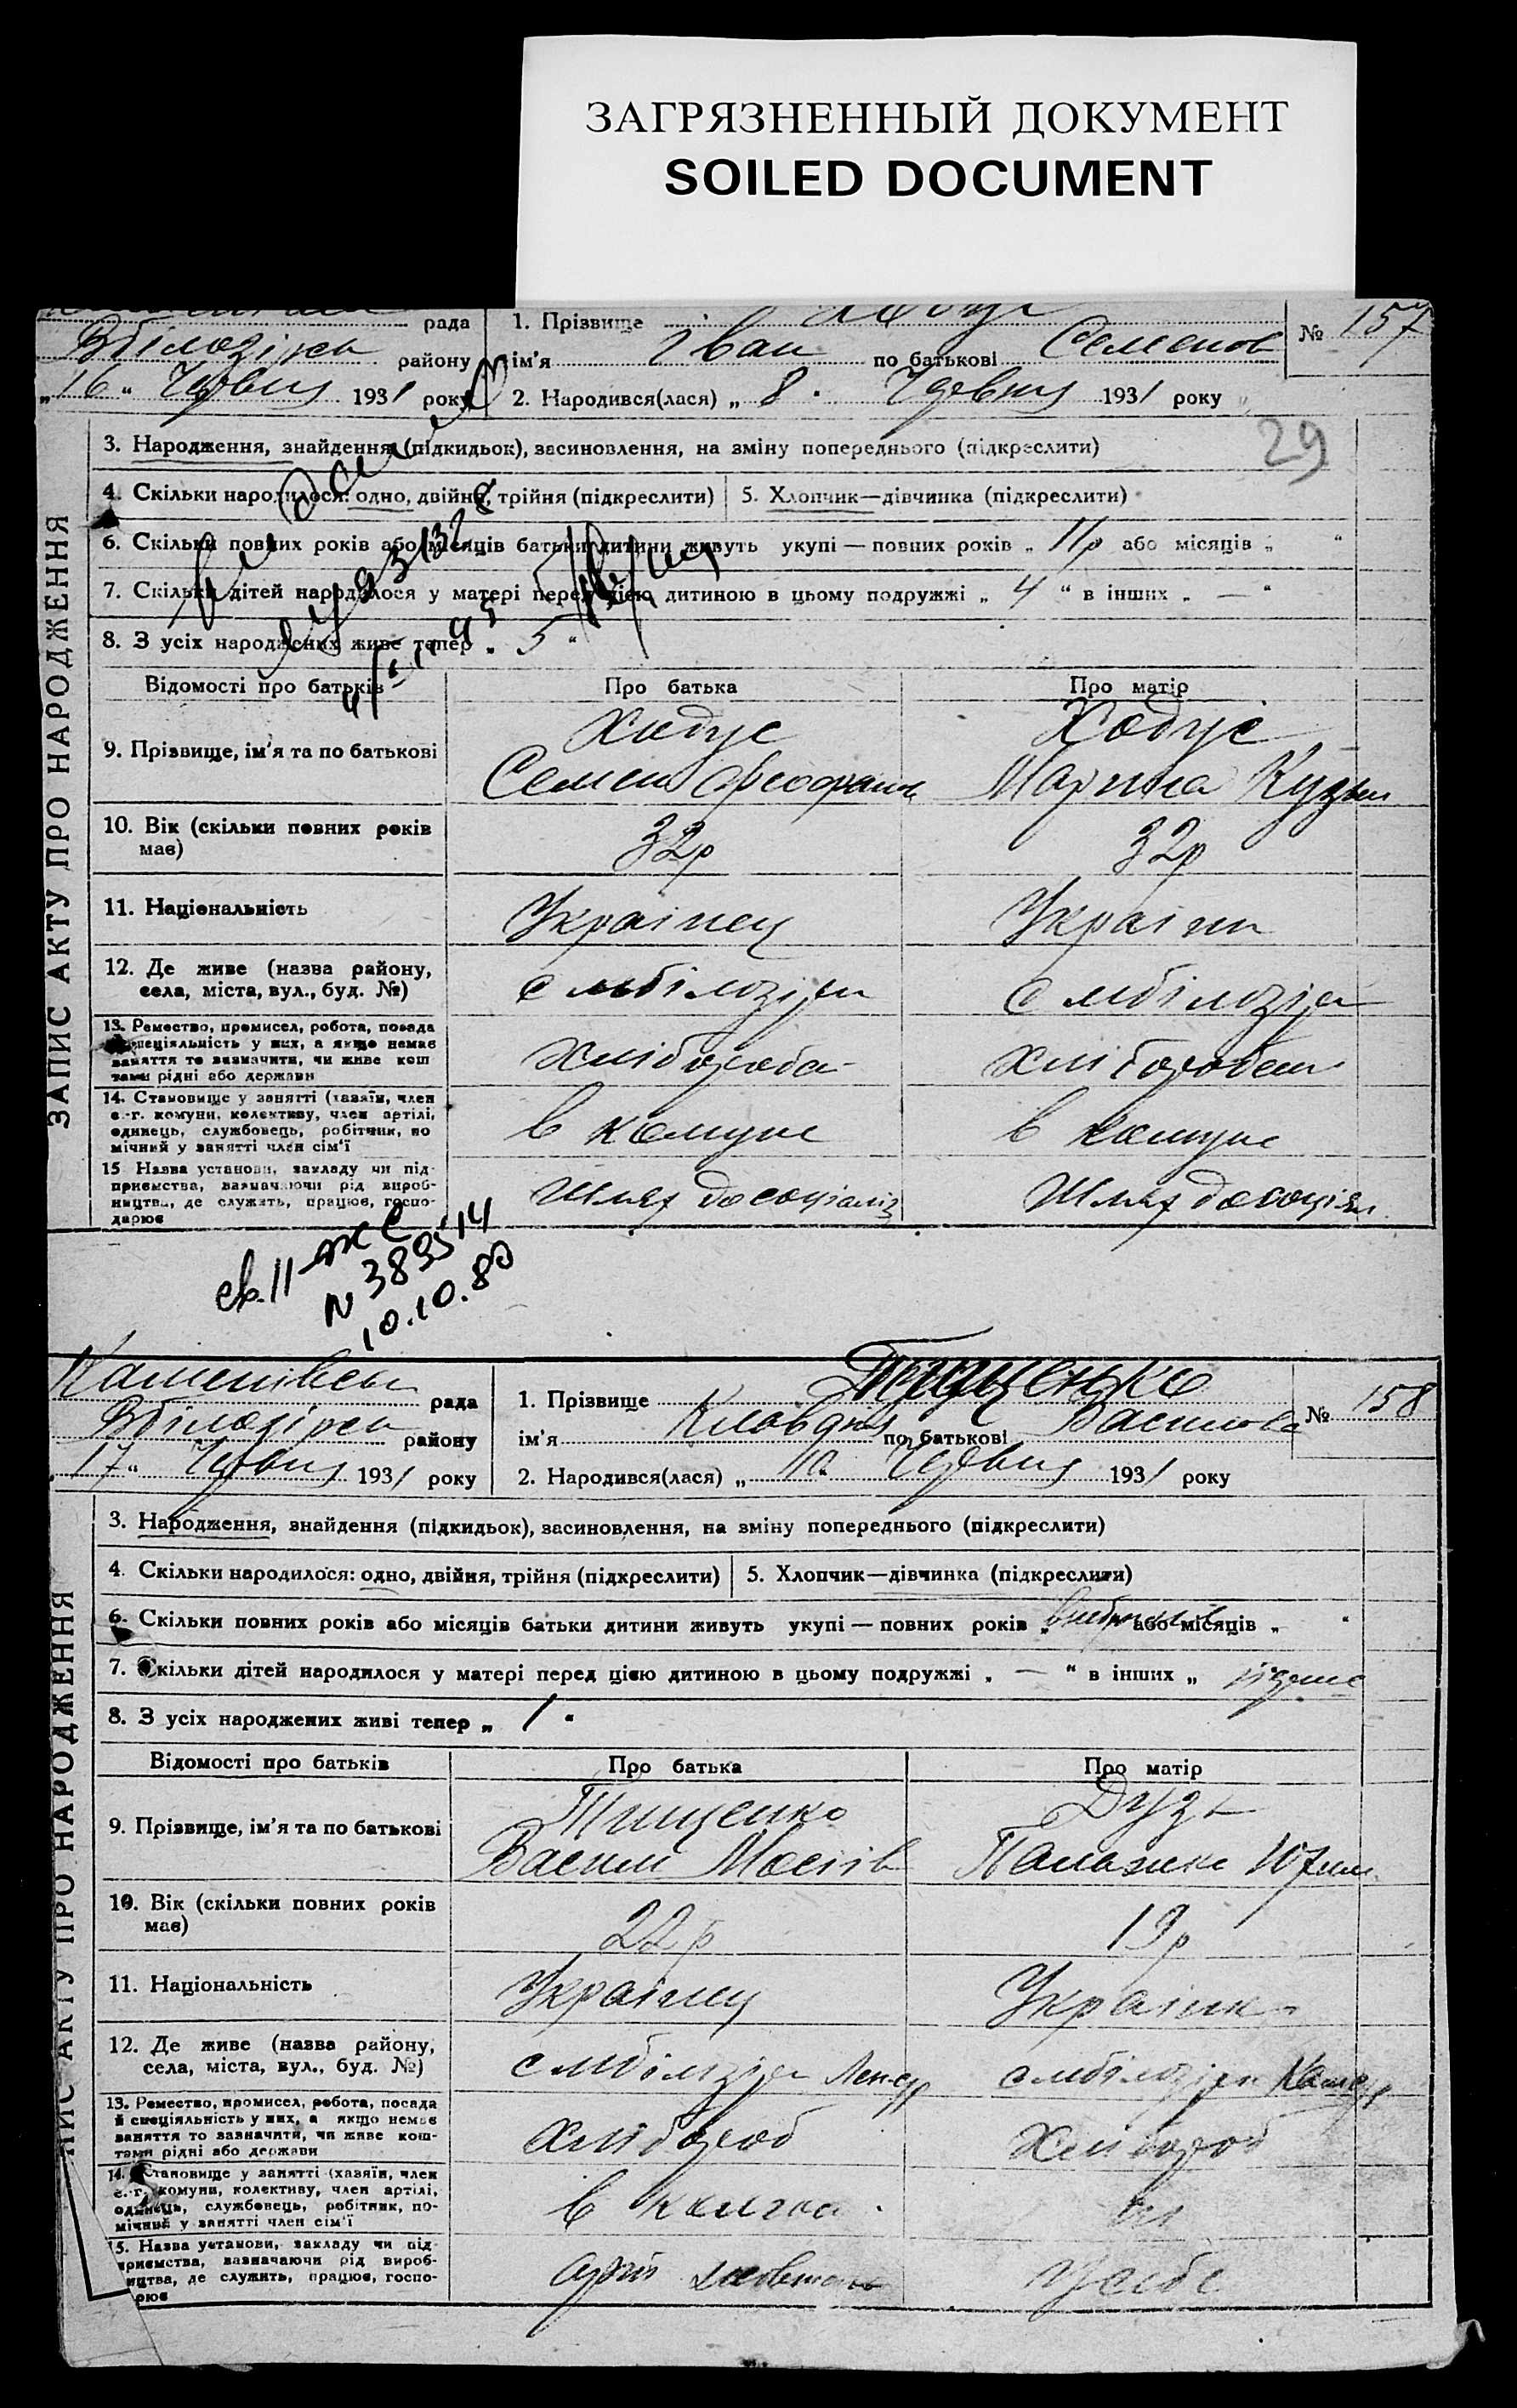 ЗАГРЯЗНЕННЫЙ ДОКУМЕНТ
SOILED DOCUMENT
рада
1. Прізвище
№ 157
Вбілозірськ району
ім'я Іван по батькові Семенов
„16“ Червня 1931 року
2. Народився(лася) „8“ Червня 1931 року
29
ЗАПИС АКТУ ПРО НАРОДЖЕННЯ
3. Народження, знайдення (підкидьок), засиновлення, на зміну попереднього (підкреслити)
4. Скільки народилося: одно, двійня, трійня (підкреслити)
5. Хлопчик—дівчинка (підкреслити)
6. Скільки повних років або місяців батьки дитини живуть укупі — повних років „ 11р або місяців „ “
7. Скільки дітей народилося у матері перед цією дитиною в цьому подружжі „ 4 “ в інших „ — “
8. З усіх народжених живе тепер „ 5 “
Відомості про батьків
Про батька
Про матір
9. Прізвище, ім'я та по батькові
Ходус
Ходус
Семен
Марина Кузьм
10. Вік (скільки повних років має)
32р
32р
11. Національність
Украінец
Украінк
12. Де живе (назва району,
села, міста, вул., буд. №)
с мбілозірка
с мбілозірка
13. Ремество, промисел, робота, посада
й спеціяльність у них, а якщо немає
заняття то зазначити, чи живе кош
тами рідні або держави
хлібороба
хліборобка
14. Становище у занятті (хазяїн, член
с.-г. комуни, колективу, член артілі,
одинець, службовець, робітник, по
мічний у занятті член сім'ї
в комуне
в комуне
15 Назва установи, закладу чи під-
приємства, зазначаючи рід вироб-
ництва, де служить, працює, госпо-
дарює
Шлях до соціаліз
Шлях до соціял
св. 11-ЖС
N 389514
10.10.80
Каменівськ рада
1. Прізвище Тищенко
№ 158
Вбілозірськ району
ім'я Клавдія по батькові Василова
„17“ Червня 1931 року
2. Народився(лася) „10“ Червня 1931 року
ЗАПИС АКТУ ПРО НАРОДЖЕННЯ
3. Народження, знайдення (підкидьок), засиновлення, на зміну попереднього (підкреслити)
4. Скільки народилося: одно, двійня, трійня (підкреслити)
5. Хлопчик—дівчинка (підкреслити)
6. Скільки повних років або місяців батьки дитини живуть укупі — повних років „ або місяців „ “
7. Скільки дітей народилося у матері перед цією дитиною в цьому подружжі „ — “ в інших „
8. З усіх народжених живі тепер „ 1 “
Відомості про батьків
Про батька
Про матір
9. Прізвище, ім'я та по батькові
Тищенко
Дузь
Васили Мосіів
Палажка Юхим
10. Вік (скільки повних років має)
22р
19р
11. Національність
Украінец
Украінк
12. Де живе (назва району,
села, міста, вул., буд. №)
с мбілозірка
с мбілозірка
13. Ремество, промисел, робота, посада
й спеціяльність у них, а якщо немає
заняття то зазначити, чи живе кош-
тами рідні або держави
хлібороб
хлібороб
14. Становище у занятті (хазяїн, член
с.-г. комуни, колективу, член артілі,
одинець, службовець, робітник, по-
мічний у занятті член сім'ї
в
15. Назва установи, закладу чи під-
приємства, зазначаючи рід вироб-
ництва, де служить, працює, госпо-
дарює
у себе